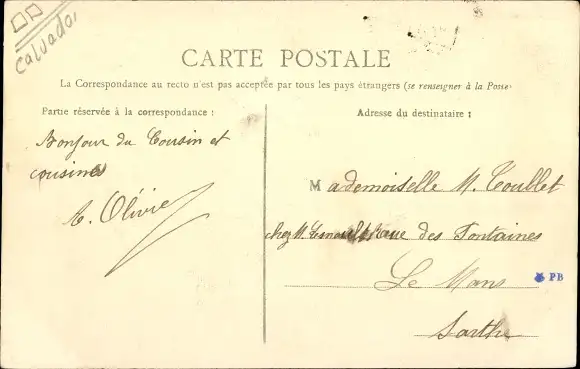 Calvados
CARTE POSTALE
La Correspondance au recto n'est pas acceptée par tous les pays étrangers (se renseigner à la Poste.
Partie réservée à la correspondance :
Bonjour du Cousin et
cousine
Olivie
Adresse du destinataire :
Mademoiselle M. Toublet
chez M. rue des Fontaines
Le Mans
PB
Sarthe